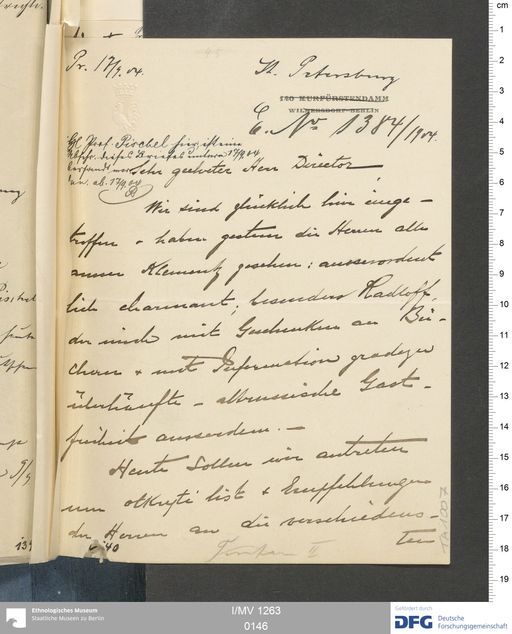 Pr. 17/9. 04.
St. Petersburg
140 KURFÜRSTENDAMM
WILMERSDORF-BERLIN
E. No 1384/1904.
Hl. Prof. Pischel hier ist eine
Abschr. dieses Briefes unterm 17/9 04
ab. 17/9 04
Sehr geehrter Herr Director
Wir sind glücklich hier einge-
troffen & haben gestern die Herren alle
ausser Klementz gesehen: ausserordent
lich charmant; besonders Radloff
der mich mit Geschenken an Bü-
chern & mit Information gradezu
überhäufte – altrussische Gast-
freiheit ausserdem. –
Heute sollen wir antreten
um otkryti list & Empfehlungen
der Herren an die verschiedens-
ten
Turfan II
TA 1007
Ethnologisches Museum
Staatliche Museen zu Berlin
I/MV 1263
0146
Gefördert durch
DFG Deutsche
Forschungsgemeinschaft
cm
1
2
3
4
5
6
7
8
9
10
11
12
13
14
15
16
17
18
19